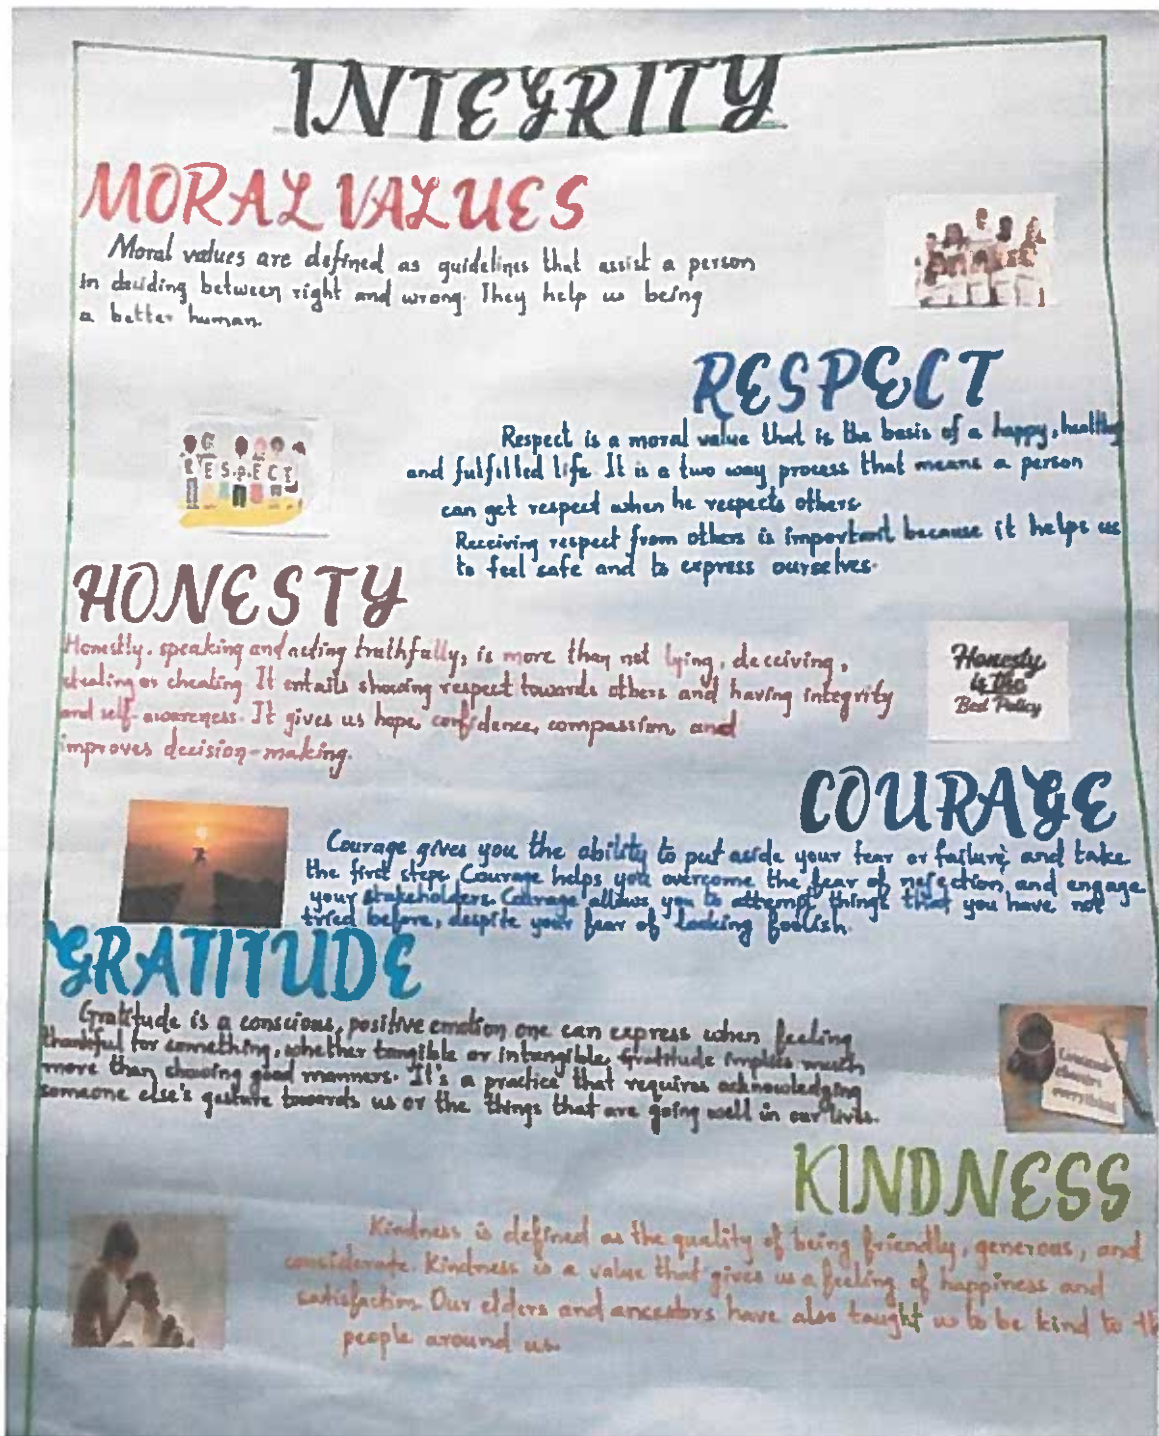 INTEGRITY
MORAL VALUES
Moral values are defined as guidelines that assist a person
in deciding between right and wrong. They help us being
a better human.
RESPECT
Respect is a moral value that is the basis of a happy, healthy
and fulfilled life. It is a two way process that means a person
can get respect when he respects others.
Receiving respect from others is important because it helps us
to feel safe and to express ourselves.
RESPECT
HONESTY
Honestly, speaking and acting truthfully, is more than not lying, deceiving,
stealing or cheating. It entails showing respect towards others and having integrity
and self-awareness. It gives us hope, confidence, compassion, and
improves decision-making.
Honesty
is the
Best Policy
COURAGE
Courage gives you the ability to put aside your fear or failure, and take
the first step. Courage helps you overcome the fear of rejection, and engage
your stakeholders. Courage allows you to attempt things that you have not
tried before, despite your fear of looking foolish.
GRATITUDE
Gratitude is a conscious, positive emotion one can express when feeling
thankful for something, whether tangible or intangible. Gratitude implies much
more than showing good manners. It's a practice that requires acknowledging
someone else's gesture towards us or the things that are going well in our lives.
changes
everything
KINDNESS
Kindness is defined as the quality of being friendly, generous, and
considerate. Kindness is a value that gives us a feeling of happiness and
satisfaction. Our elders and ancestors have also taught us to be kind to
people around us.